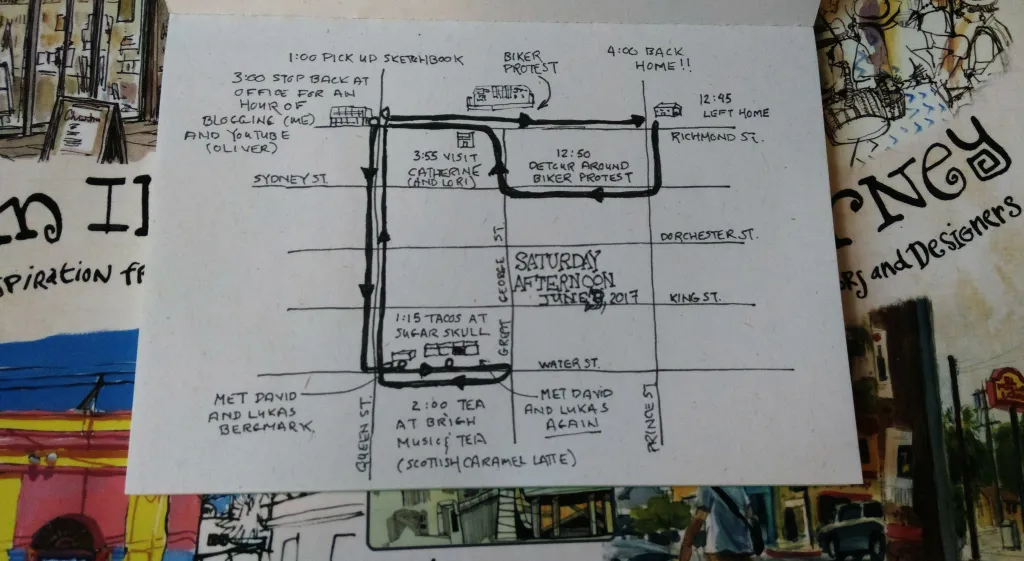 1:00 PICK UP SKETCHBOOK
BIKER
PROTEST
4:00 BACK
HOME!!
3:00 STOP BACK AT
OFFICE FOR AN
HOUR OF
BLOGGING (ME)
AND YOUTUBE
(OLIVER)
12:45
LEFT HOME
RICHMOND ST.
3:55 VISIT
CATHERINE
(AND LORI)
12:50
DETOUR AROUND
BIKER PROTEST
SYDNEY ST.
DORCHESTER ST.
SATURDAY
AFTERNOON
JUNE 3, 2017
KING ST.
GREAT GEORGE ST.
1:15 TACOS AT
SUGAR SKULL
WATER ST.
MET DAVID
AND LUKAS
BERGMARK
QUEEN ST.
2:00 TEA
AT BRIGH
MUSIC & TEA
(SCOTTISH CARAMEL LATTE)
MET DAVID
AND LUKAS
AGAIN
PRINCE ST
RNey
spiration fr
rs and Designers